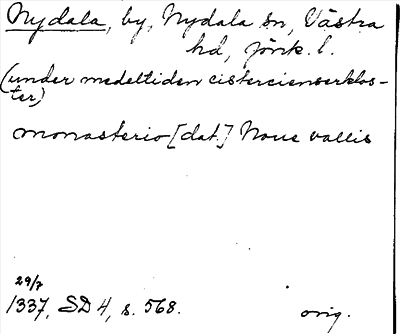 Nydala, by, Nydala sn, Västra
hd, Jönk. l.
(under medeltiden cistercienserklos-
ter)
monasterio [dat.] Noue vallis
29/7
1337, SD 4, s. 568. orig.